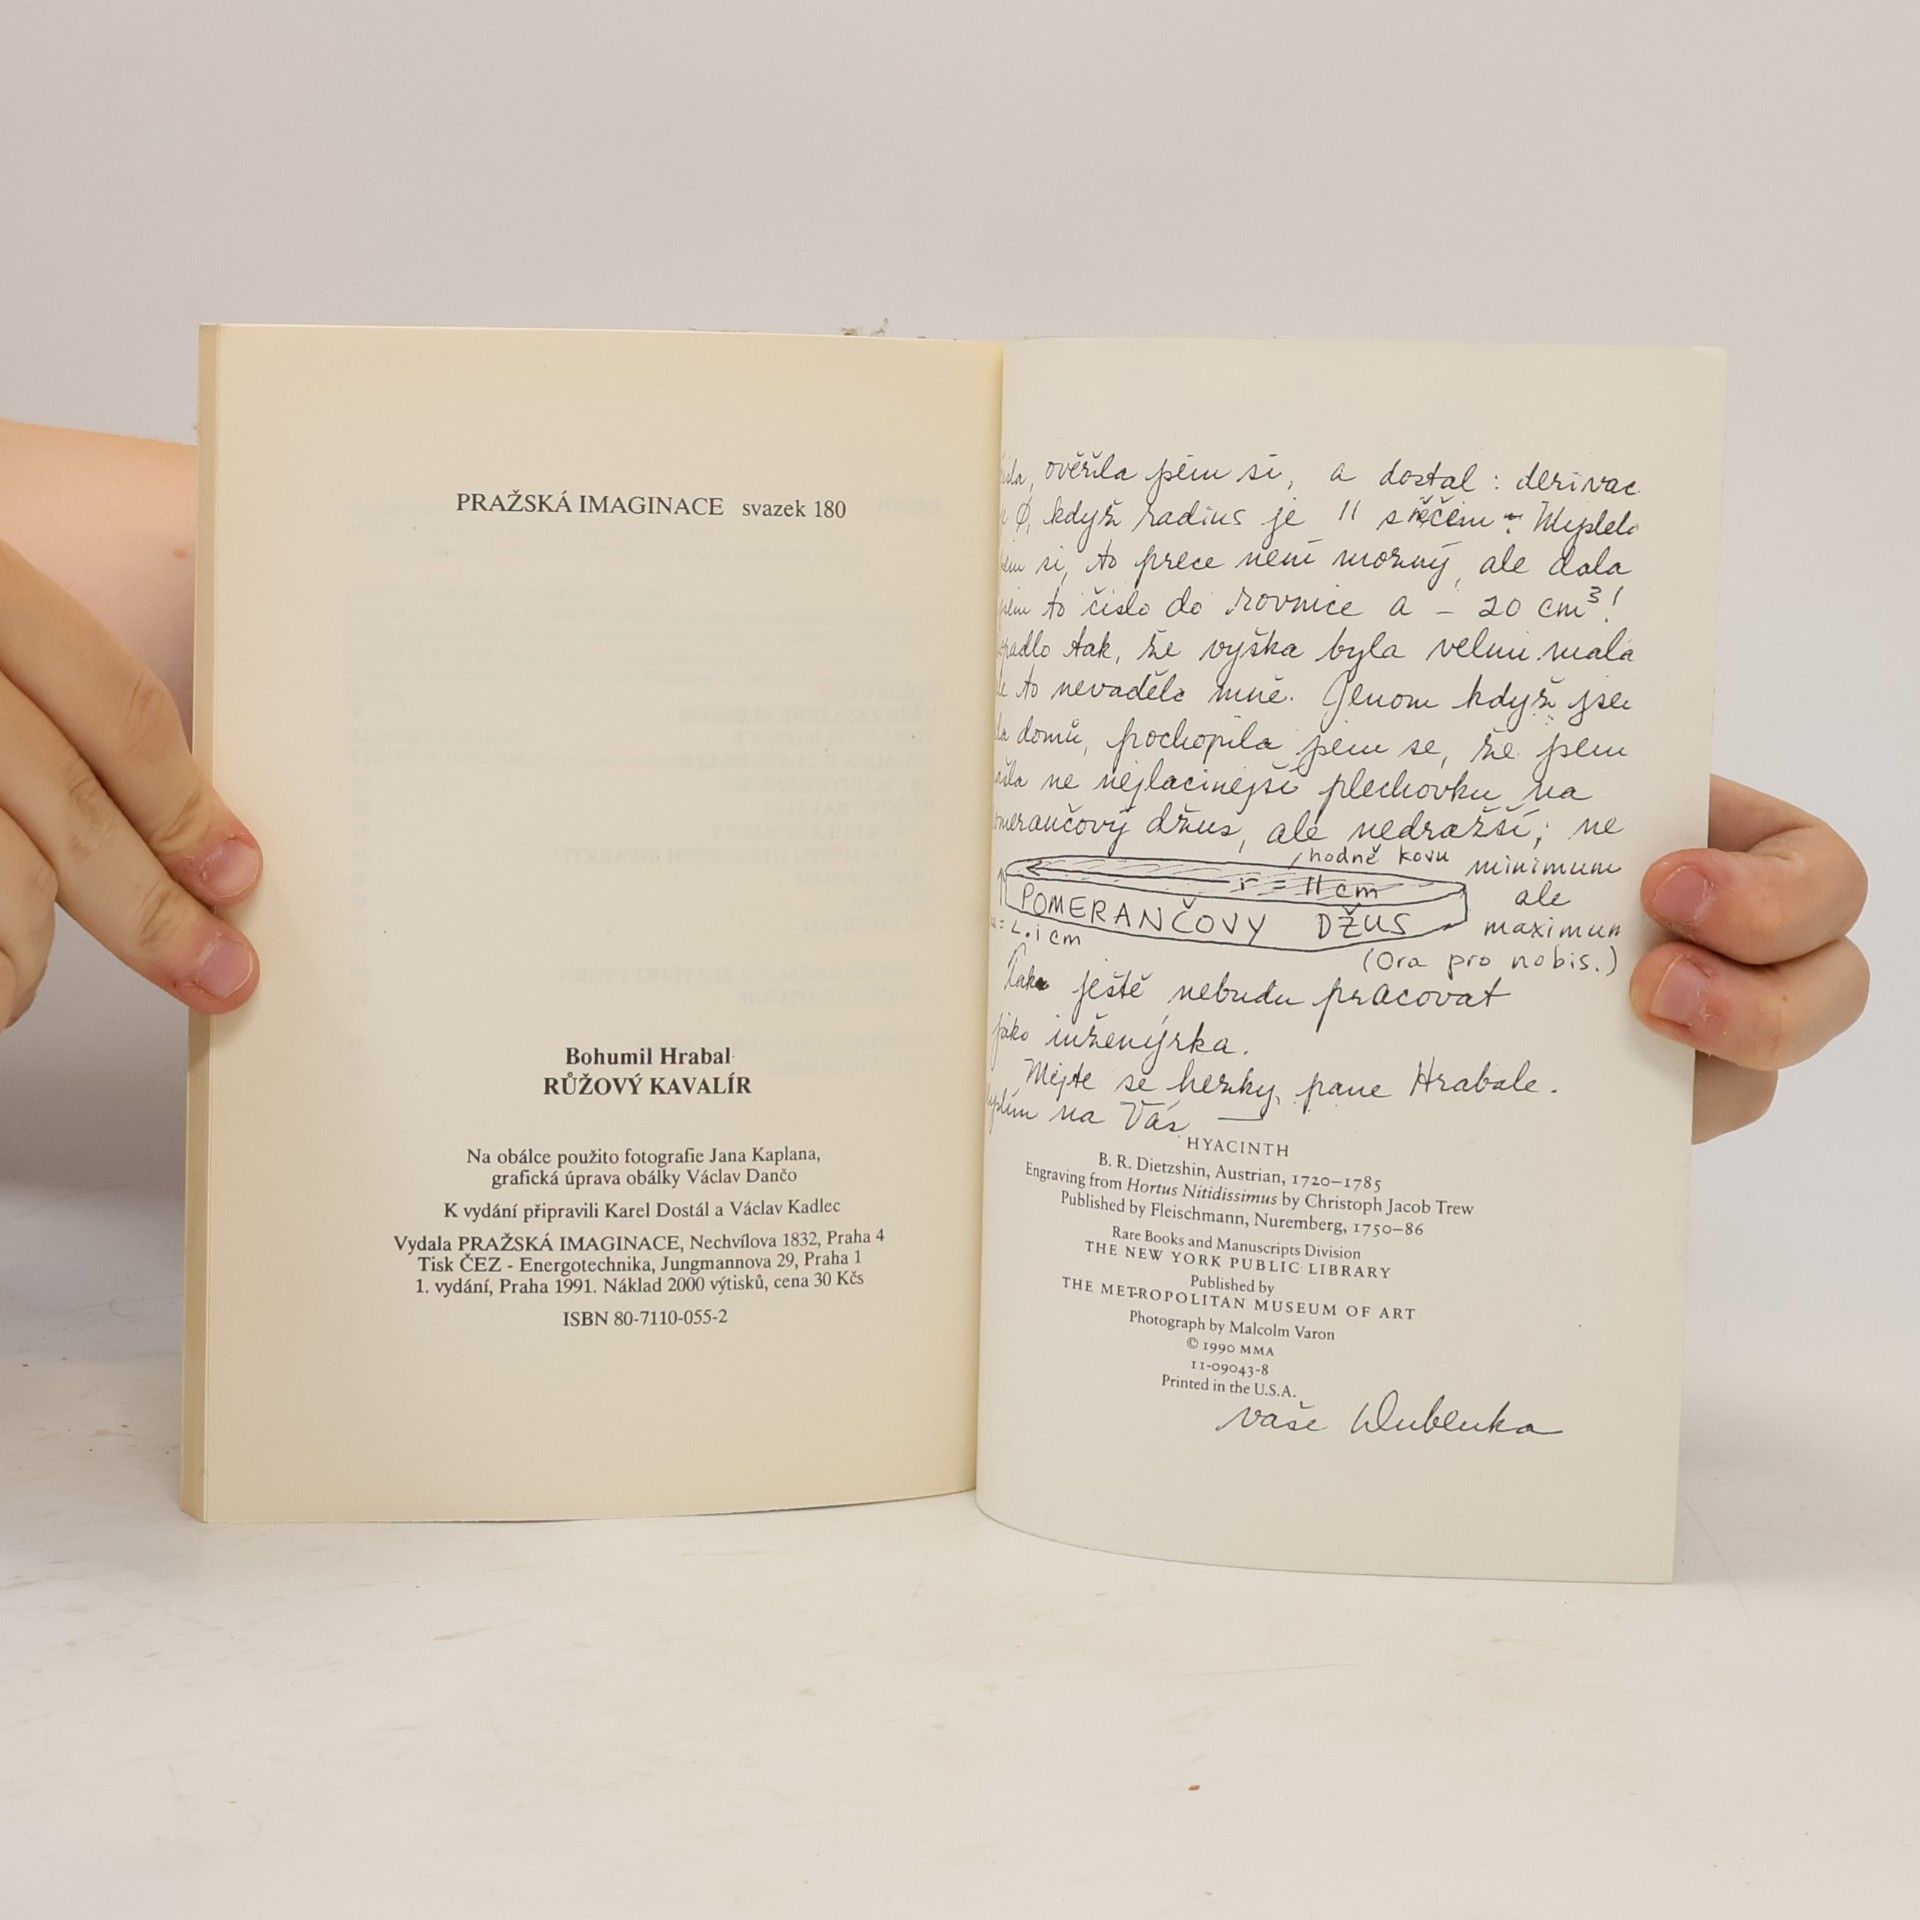 PRAŽSKÁ IMAGINACE svazek 180
Bohumil Hrabal
RŮŽOVÝ KAVALÍR
Na obálce použito fotografie Jana Kaplana,
grafická úprava obálky Václav Dančo
K vydání připravili Karel Dostál a Václav Kadlec
Vydala PRAŽSKÁ IMAGINACE, Nechvílova 1832, Praha 4
Tisk ČEZ - Energotechnika, Jungmannova 29, Praha 1
1. vydání, Praha 1991. Náklad 2000 výtisků, cena 30 Kčs
ISBN 80-7110-055-2
ověřila jsem si, a dostal: derivac
Ø, když radius je 11
si, to prece není možný, ale dala
to čislo do rovnice a - 20 cm³!
tak, že vyška byla velmi mala
to nevadělo mně. Jenom když jsem
domů, pochopila jsem se, že jsem
ne nejlacinejší plechovku na
džus, ale nedražší; ne
hodně kovu minimum
r = 11 cm ale
POMERANČOVY DŽUS maximum
(Ora pro nobis.)
ještě nebudu pracovat
jako inženýrka.
Mějte se hezky, pane Hrabale.
na Vás —
HYACINTH
B. R. Dietzshin, Austrian, 1720–1785
Engraving from Hortus Nitidissimus by Christoph Jacob Trew
Published by Fleischmann, Nuremberg, 1750–86
Rare Books and Manuscripts Division
THE NEW YORK PUBLIC LIBRARY
Published by
THE METROPOLITAN MUSEUM OF ART
Photograph by Malcolm Varon
© 1990 MMA
11-09043-8
Printed in the U.S.A.
vaše Dubenka